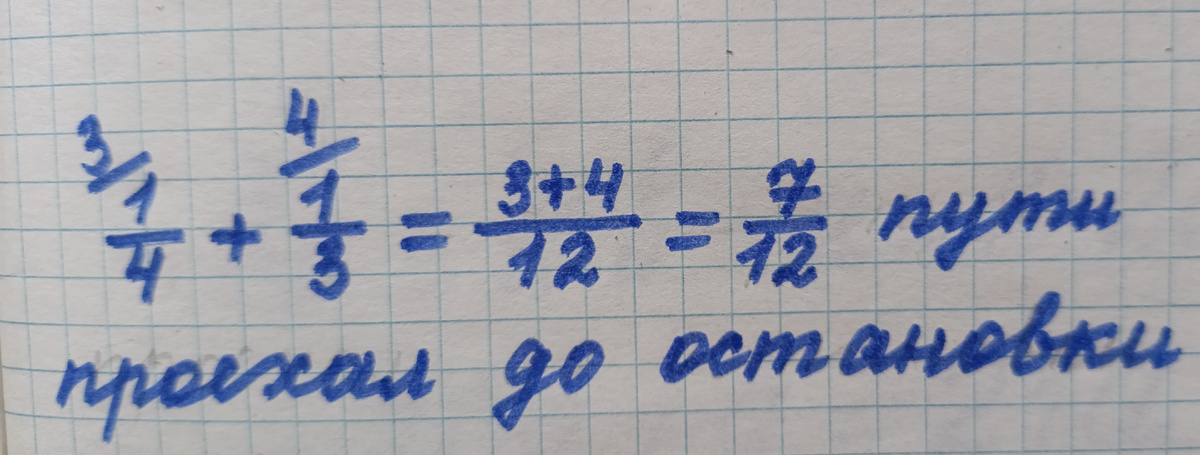 3/ 1/4 + 4/ 1/3 = 3+4/12 = 7/12 пути
проехал до остановки